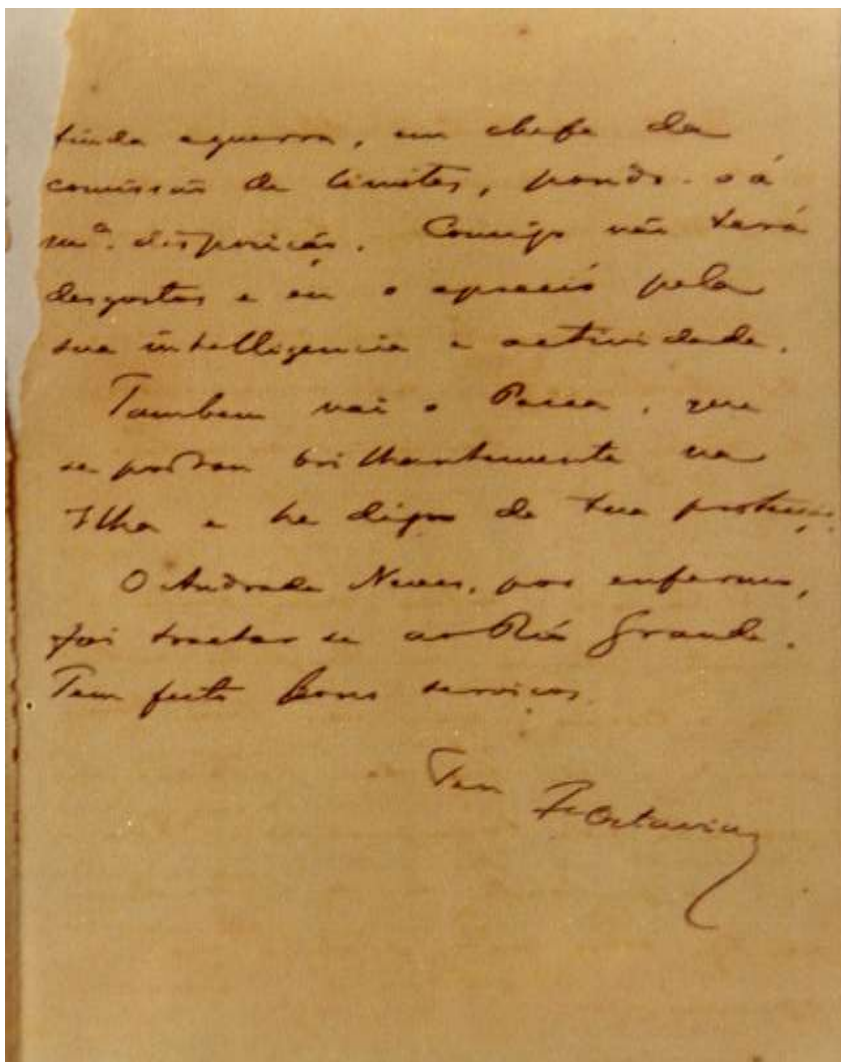 finda a guerra, em chefe da
comissão de limites, pondo-o á
mª. disposição. Comigo não terá
desgostos e eu o aprecio pela
sua intelligencia e actividade.
Tambem vai o que
se portou brilhantemente na
Ilha e he digno de tua protecção.
O Andrade Neves, por enfermo,
foi tractar-se ao Rio Grande.
Tem feito bons serviços.
Teu F Octaviano